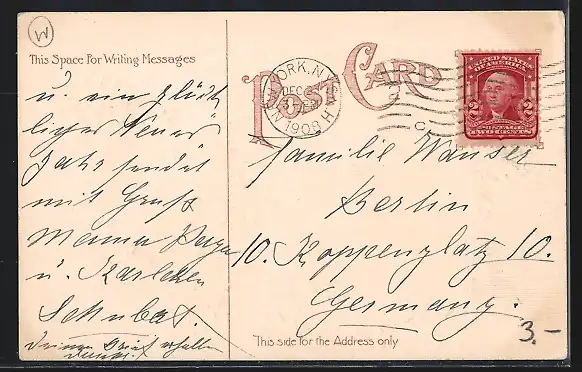 W
This Space For Writing Messages
POST CARD
NEW YORK, N.Y.
DEC
1908
UNITED STATES
OF AMERICA
2 2
TWO CENTS
u. ein glück
liches Neues
Jahr sendet
mit Gruß
Mama
u.
Familie Wanser
Berlin
10. Koppenplatz 10.
Germany.
This side for the Address only
3.-
Deinen Brief erhalten